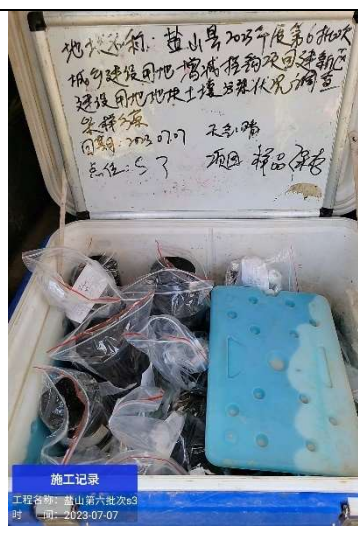 地块名称:盐山县2023年度第6批次
城乡建设用地增减挂钩项目建新区
建设用地地块土壤污染状况调查
采样方案
日期:2023.07.07 天气:晴
点位:S3 项目 样品保存
施工记录
工程名称:盐山第六批次s3
时 间:2023-07-07